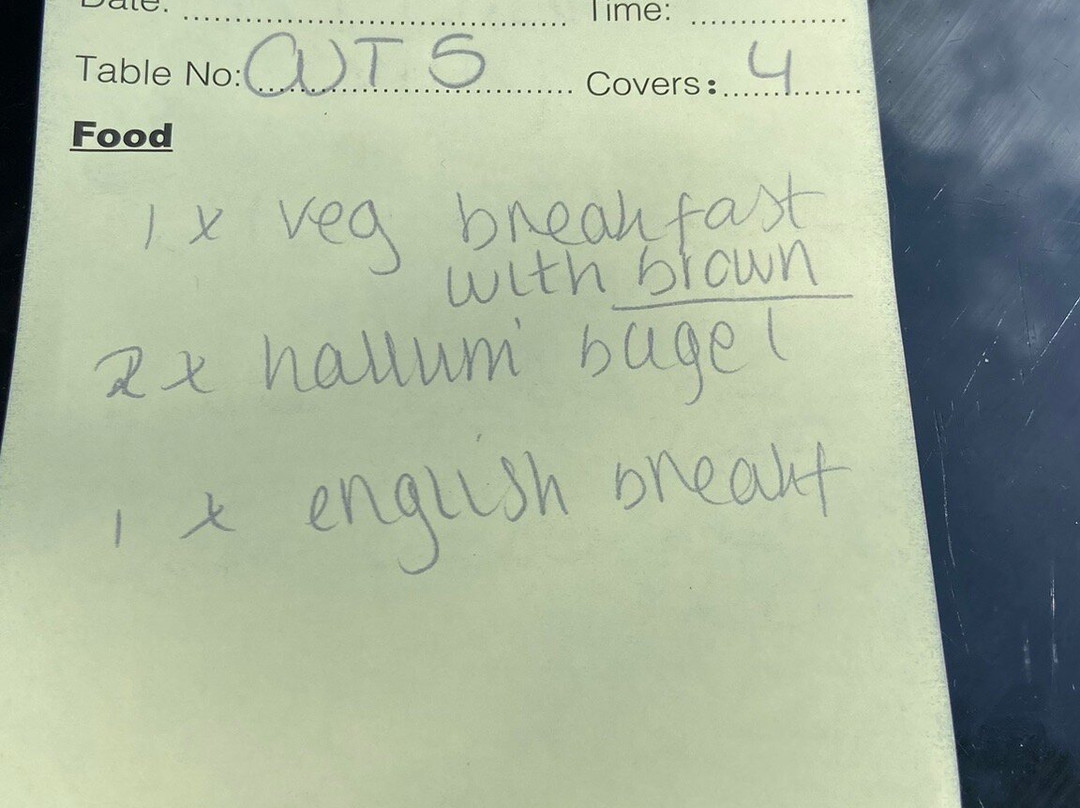 Date: Time:
Table No: OUT 5 Covers: 4
Food
1 x veg breakfast
with brown
2 x hallumi bagel
1 x english breakf